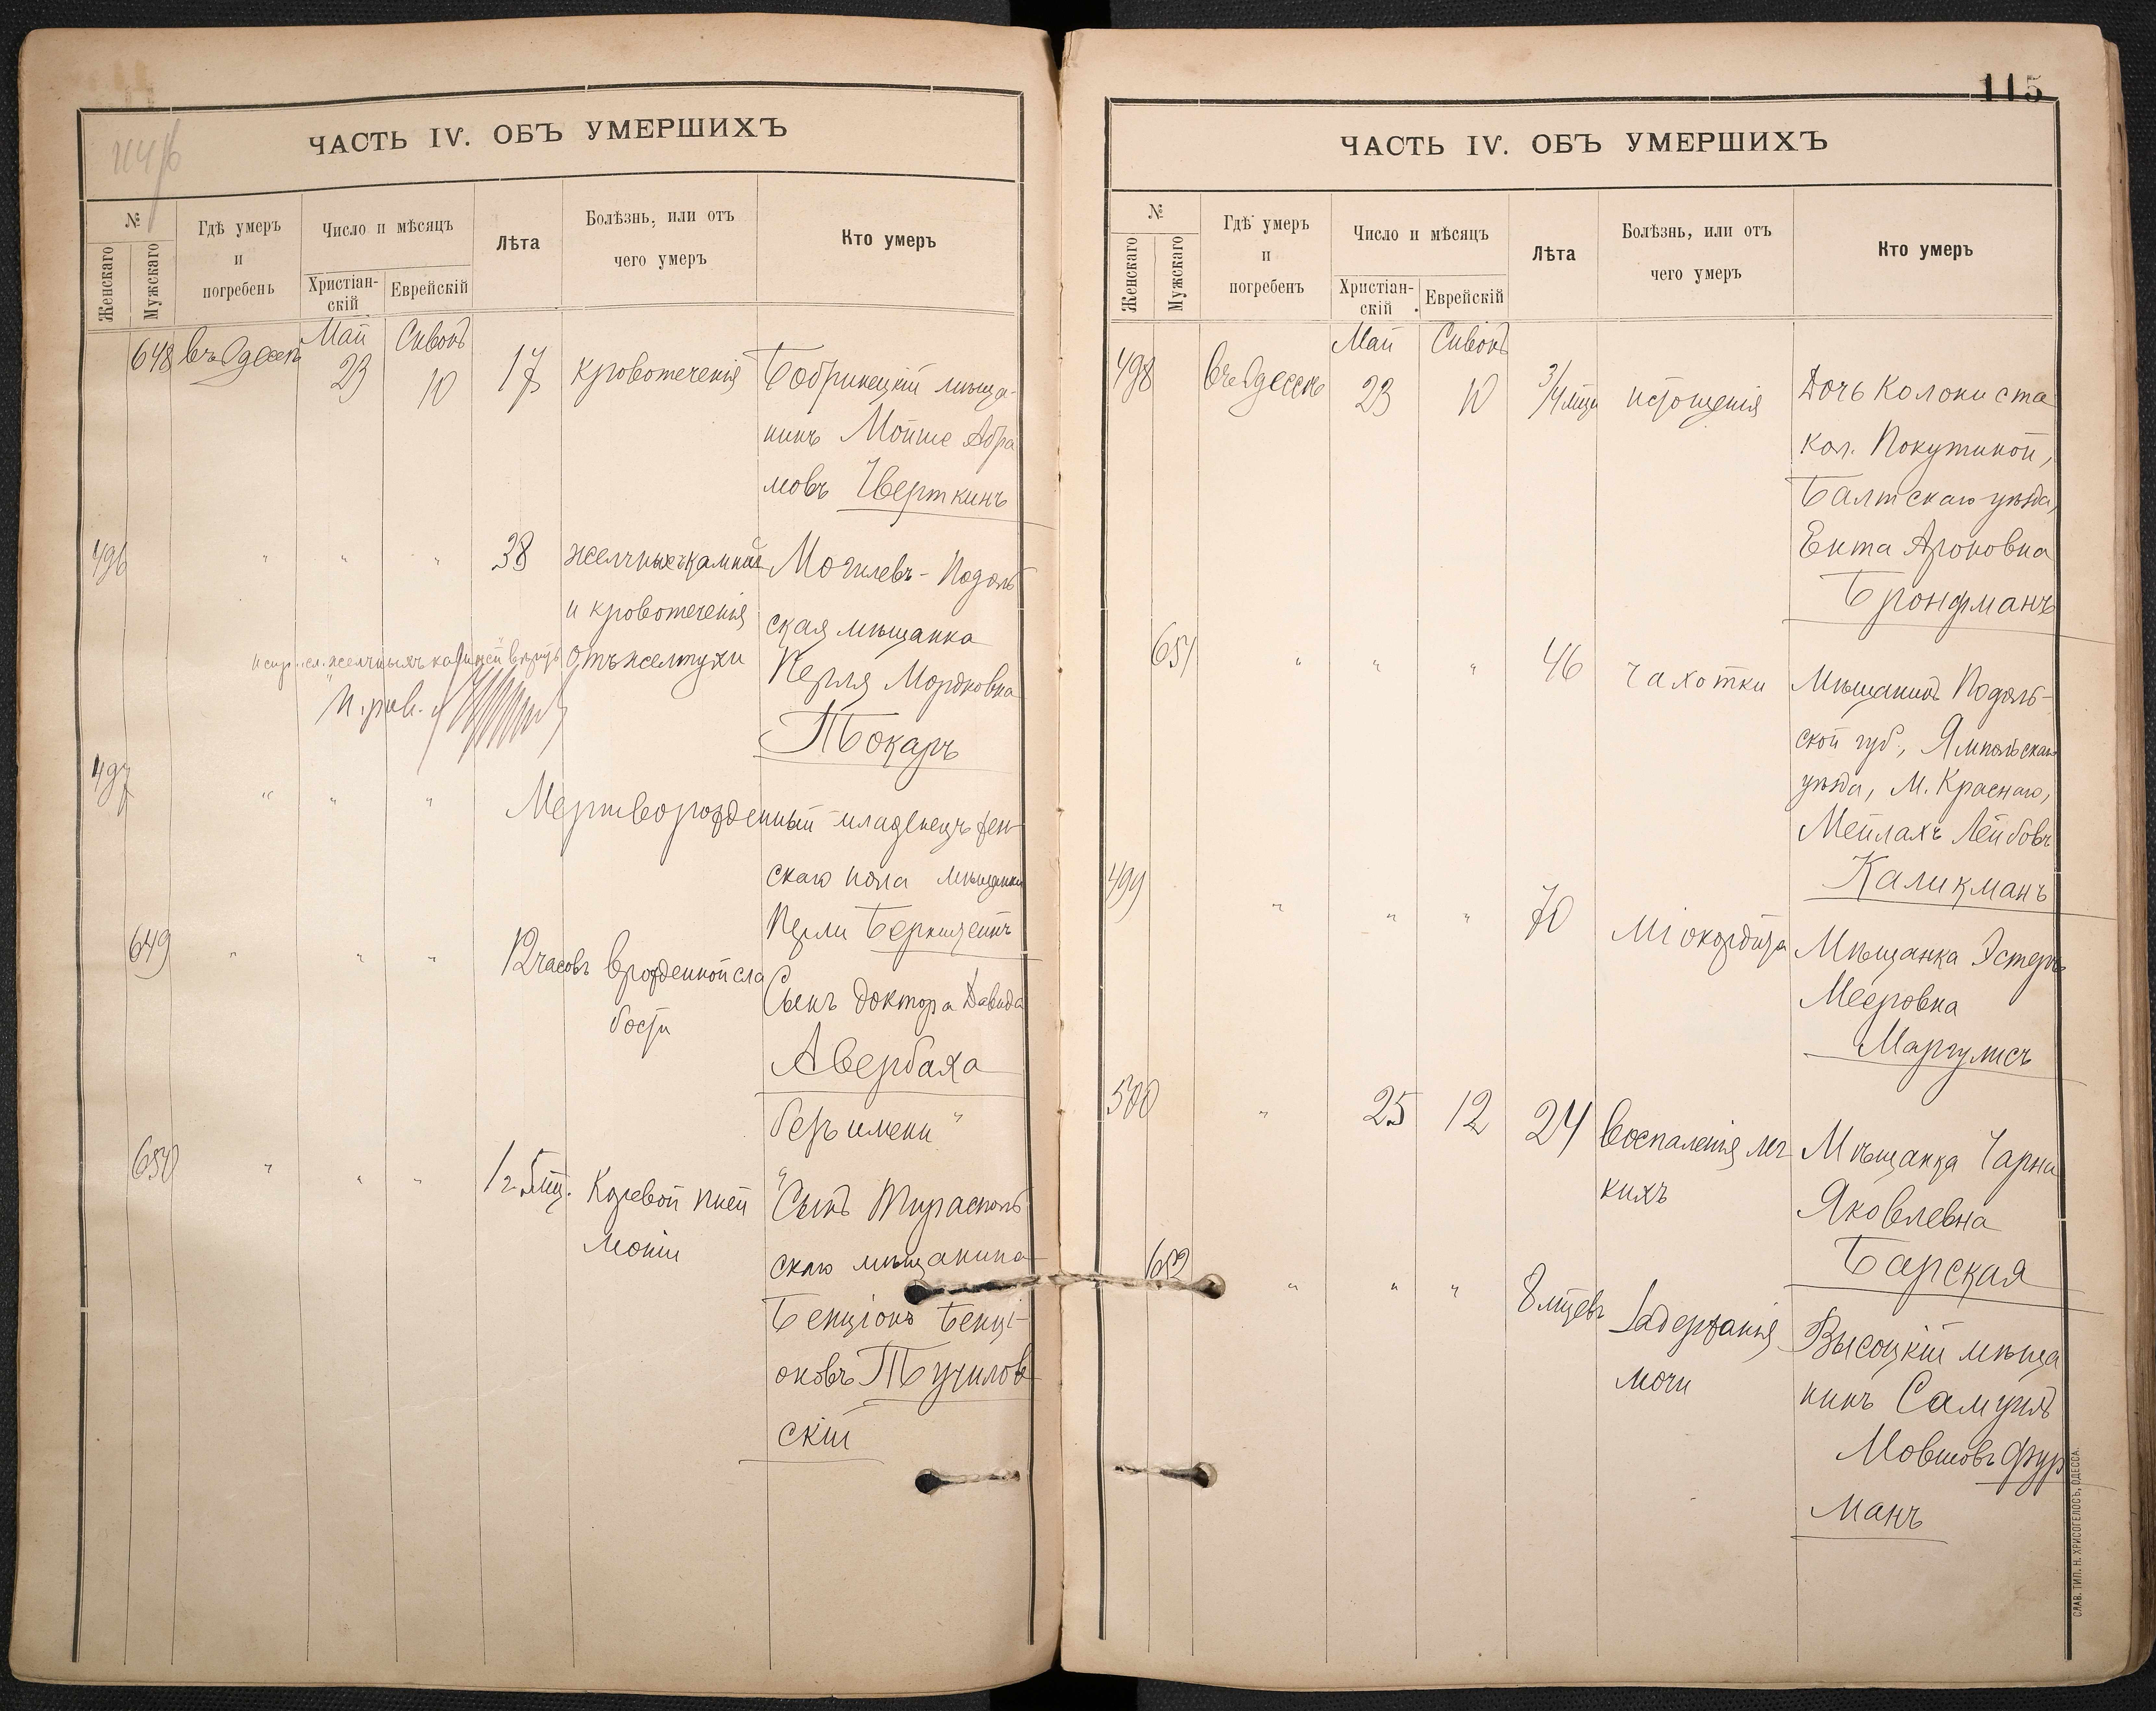 ЧАСТЬ IV. ОБЪ УМЕРШИХЪ
№
Женскаго
Мужскаго
Гдѣ умеръ
и
погребенъ
Число и мѣсяцъ
Христіан-
скій
Еврейскій
Лѣта
Болѣзнь, или отъ
чего умеръ
Кто умеръ
Май Сивонъ
648 въ Одессѣ 23 10 17 кровотеченія Бобринецкій мѣща-
нинъ Мойше Абра
мовъ Чверткинъ
496 " " " 38 желчныхъ камней Могилевъ-Подоль
и кровотеченія ская мѣщанка
отъ желтухи Перля Мордковна
Токарь
497 " " " Мертворожденный младенецъ жен
скаго пола мѣщанки
Перли Бернштейнъ
649 " " " 12 часовъ врожденной сла
бости
Сынъ доктора Давида
Авербаха
безъ имени "
650 " " " 1 г. 5 мц. Коревой пней
моніи
Сынъ Тирасполь
скаго мѣщанина
Бенціонъ Бенці-
оновъ Тучилов
скій
115
ЧАСТЬ IV. ОБЪ УМЕРШИХЪ
№
Женскаго
Мужскаго
Гдѣ умеръ
и
погребенъ
Число и мѣсяцъ
Христіан-
скій
Еврейскій
Лѣта
Болѣзнь, или отъ
чего умеръ
Кто умеръ
Май Сивонъ
498 въ Одессѣ 23 10 3/4 мца истощенія Дочь колониста
кол. Покутиной,
Балтскаго уѣзда,
Ента Ароновна
Бронфманъ
651 " " " 46 чахотки Мѣщанинъ Подоль-
ской губ., Ямпольскаго
уѣзда, М. Краснаго,
Мейлахъ Лейбовъ
Каликманъ
499 " " " 70 міокордита Мѣщанка Эстеръ
Мееровна
Маргулисъ
500 " 25 12 24 воспаленія лег
кихъ
Мѣщанка Чарна
Яковлевна
Барская
652 " " " 8 мцевъ задержанія
мочи
Высоцкій мѣща
нинъ Самуилъ
Мовшовъ Фур
манъ
СЛАВ. ТИП. Н. ХРИСОГЕЛОСЪ, ОДЕССА.